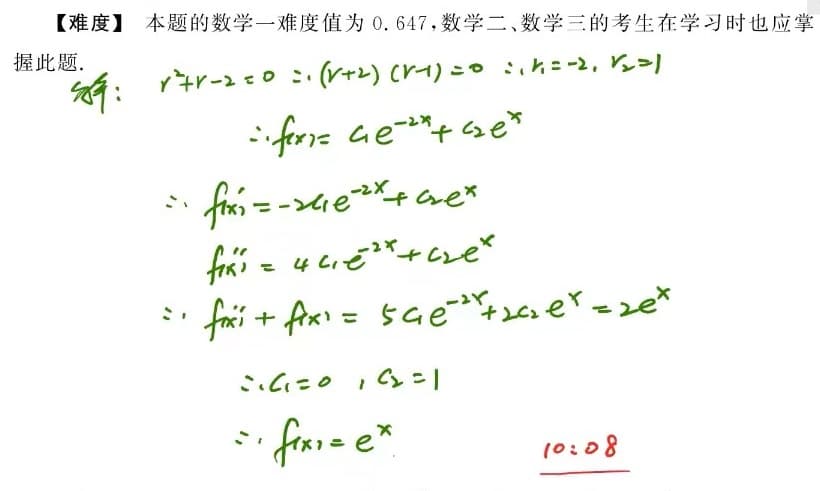 【难度】 本题的数学一难度值为 0.647,数学二、数学三的考生在学习时也应掌
握此题.
解: r²+r-2=0 ∴(r+2)(r-1)=0 ∴r₁=-2, r₂=1
∴f(x)=C₁e⁻²ˣ+C₂eˣ
∴ f'(x)=-2C₁e⁻²ˣ+C₂eˣ
f''(x)=4C₁e⁻²ˣ+C₂eˣ
∴ f''(x)+f(x)=5C₁e⁻²ˣ+2C₂eˣ=2eˣ
∴C₁=0 , C₂=1
∴ f(x)=eˣ.
10:08